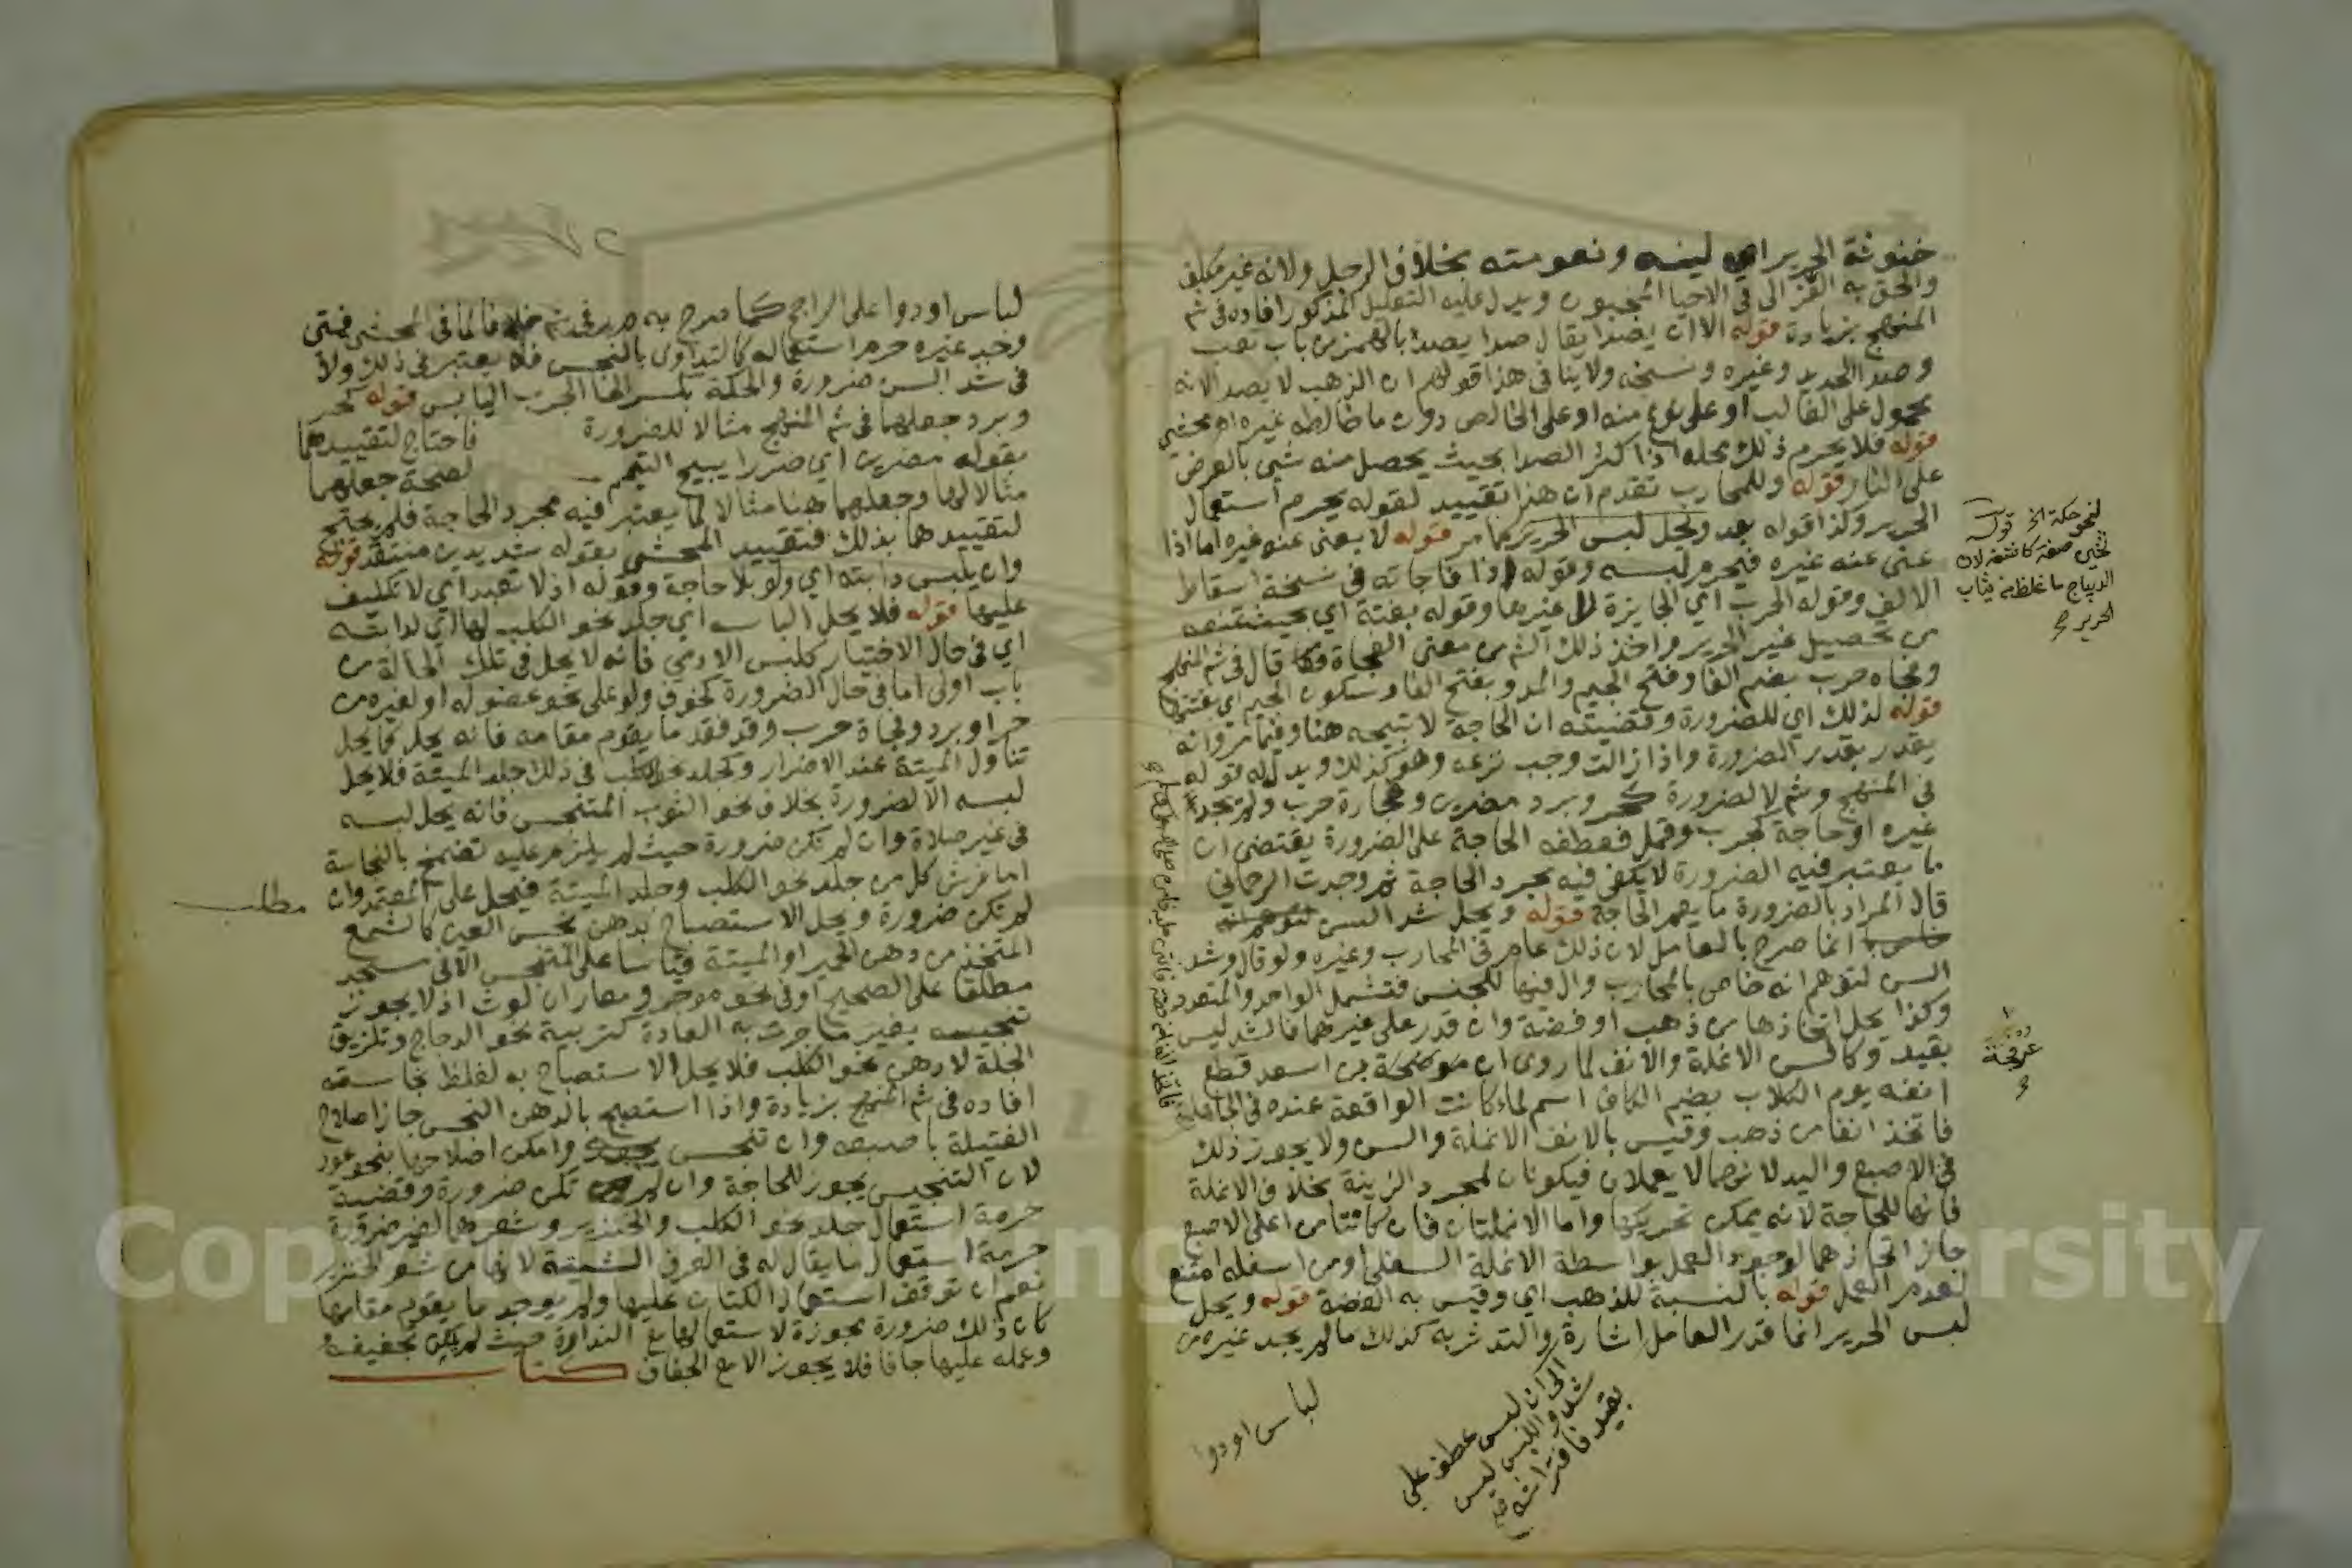 خنوثة الحرير اي لينه ونعومته بخلاف الرجل ولانه غير مكلف
والحق به الغزالي في الاحيا المجنون ويدل عليه التعليل المذكور افاده في شم
المنهج بزيادة قوله الا ان يصدا يقال صدا يصدا بالهمز من باب تعب
وصدا الحديد وغيره وسخه ولا ينافي هذا قولهم ان الذهب لا يصدا لانه
محمول على الغالب او على نوع منه او على الخالص دون ما خالطه غيره اه محشي
قوله فلا يحرم ذلك محله اذا كثر الصدا بحيث يحصل منه شي بالعرض
على النار قوله وللمحارب تقدم ان هذا تقييد لقوله يحرم استعمال
الحرير وكذا قوله بعد ويحل لبس الحرير كما مر قوله لا يغني عنه غيره اما اذا
غنى عنه غيره فيحرم لبسه وقوله اذا فاجاته في نسخة اسقاط
الالف وقوله الحرب اي الجايزة لا غيرها وقوله بغتة اي بحيث تمنعه
من تحصيل غير الحرير واخذ ذلك الش من معنى الفجاة فكا قال في شم المنهج
وفجاه حرب بضم الفا وفتح الجيم والمد وبفتح الفا وسكون الجيم اي بغتتها
قوله لذلك اي للضرورة وقضيته ان الحاجة لا تبيحه هنا وفيما مر وانه
يقدر بقدر الضرورة واذا زالت وجب نزعه وهو كذلك ويدل له قوله
في المنهج وشم لا لضرورة كحر وبرد مضرين وفجارة حرب ولم يجد
غيره او حاجة كجرب وقمل فعطفه الحاجة على الضرورة يقتضي ان
ما يعتبر فيه الضرورة لا يكفي فيه مجرد الحاجة ثم وجدت الرحماني
قال المراد بالضرورة ما يعم الحاجة قوله ويحل شد السن
انما صرح بالعامل لان ذلك عام في المحارب وغيره ولو قال وشد
السن لتوهم انه خاص بالمحارب وال فيها للجنس فتشمل الواحد والمتعدد
وكذا يحل اتخاذها من ذهب او فضة وان قدر على غيرهما فالشد ليس
بقيد وكالسن الانملة والانف لما روى ان موضحة بن اسعد قطع
انفه يوم الكلاب بضم الكاف اسم لماء كانت الواقعة عنده في الجاهلية
فاتخذ انفا من ذهب وقيس بالانف الانملة والسن ولا يجوز ذلك
في الاصبع واليد لانهما لا يعملان فيكونان لمجرد الزينة بخلاف الانملة
فانها للحاجة لانه يمكن تحريكها واما الانملتان فان كانتا من اعلى الاصبع
جاز اتخاذهما لوجود العمل بواسطة الانملة السفلى او من اسفله امتنع
لعدم العمل قوله بالنسبة للذهب اي وقيس به الفضة قوله ويحل
لبس الحرير انما قدر العامل اشارة والتدثر به كذلك ما لم يجد غيره من
الى ان لبس عطف على
شد واللبس ليس
بقيد فافتراشه
لباس او دوا
لنحو حكة الخ قوله
ثخين صفة كاشفة لان
الديباج ما غلظ من ثياب
الحرير
عرفجة
لباس او دوا على الراجح كما صرح به م ر في شم خلافا لما في المحشي فمتى
وجد غيره حرم استعماله كالتداوي بالنجس فلا يعتبر في ذلك ولا
في شد السن ضرورة والحكة بكسر الحا الجرب اليابس قوله كحر
وبرد جعلهما في شم المنهج مثالا للضرورة فاحتاج لتقييدهما
بقوله مضرين اي ضررا يبيح التيمم لصحة جعلهما
مثالا لها وجعلهما هنا مثالا لما يعتبر فيه مجرد الحاجة فلم يحتج
لتقييدهما بذلك فتقييد المحشي بقوله شديدين منتقد قوله
وان يلبس دابته اي ولو بلا حاجة وقوله اذ لا تعبد اي لا تكليف
عليها قوله فلا يحل الباسه اي جلد نحو الكلب لها اي لدابته
اي في حال الاختيار كلبس الادمي فانه لا يحل في تلك الحالة من
باب اولى اما في حال الضرورة كخوف ولو على نحو عضو له او لغيره من
حر او برد وفجاة حرب وقد فقد ما يقوم مقامه فانه يحل كما يحل
تناول الميتة عند الاضرار وكجلد نحو الكلب في ذلك جلد الميتة فلا يحل
لبسه الا لضرورة بخلاف نحو الثوب المتنجس فانه يحل لبسه
في غير صلاة وان لم تكن ضرورة حيث لم يلزم عليه تضمخ بالنجاسة
اما فرش كل من جلد نحو الكلب وجلد الميتة فيحل على المعتمد وان
لم تكن ضرورة ويحل الاستصباح بدهن نجس العين كالشمع
المتخذ من دهن الخمر او الميتة قياسا على المتنجس الا في مسجد
مطلقا على الصحيح او في نحو موجر ومعار ان لوث اذ لا يجوز
تنجيسه بغير ما جرت به العادة كتربية نحو الدجاج وتلزيق
الجلة لا دهن نحو الكلب فلا يحل الاستصباح به لغلظ نجاسته
افاده في شم المنهج بزيادة واذا استصبح بالدهن النجس جاز اصلاح
الفتيلة باصبعه وان تنجس وامكن اصلاحها بنحو عود
لان التنجيس يجوز للحاجة وان لم تكن ضرورة وقضية
حرمة استعمال جلد نحو الكلب والخنزير وشعرهما لغير ضرورة
حرمة استعمال ما يقال له في العرف الشيتة لانها من شعر الخنزير
نعم ان توقف استعمال الكتان عليها ولم يوجد ما يقوم مقامها
كان ذلك ضرورة مجوزة لاستعمالها مع النداوة حيث لم يمكن تجفيفه
وعمله عليها جافا فلا يجوز الا مع الجفاف كتاب
مطلب